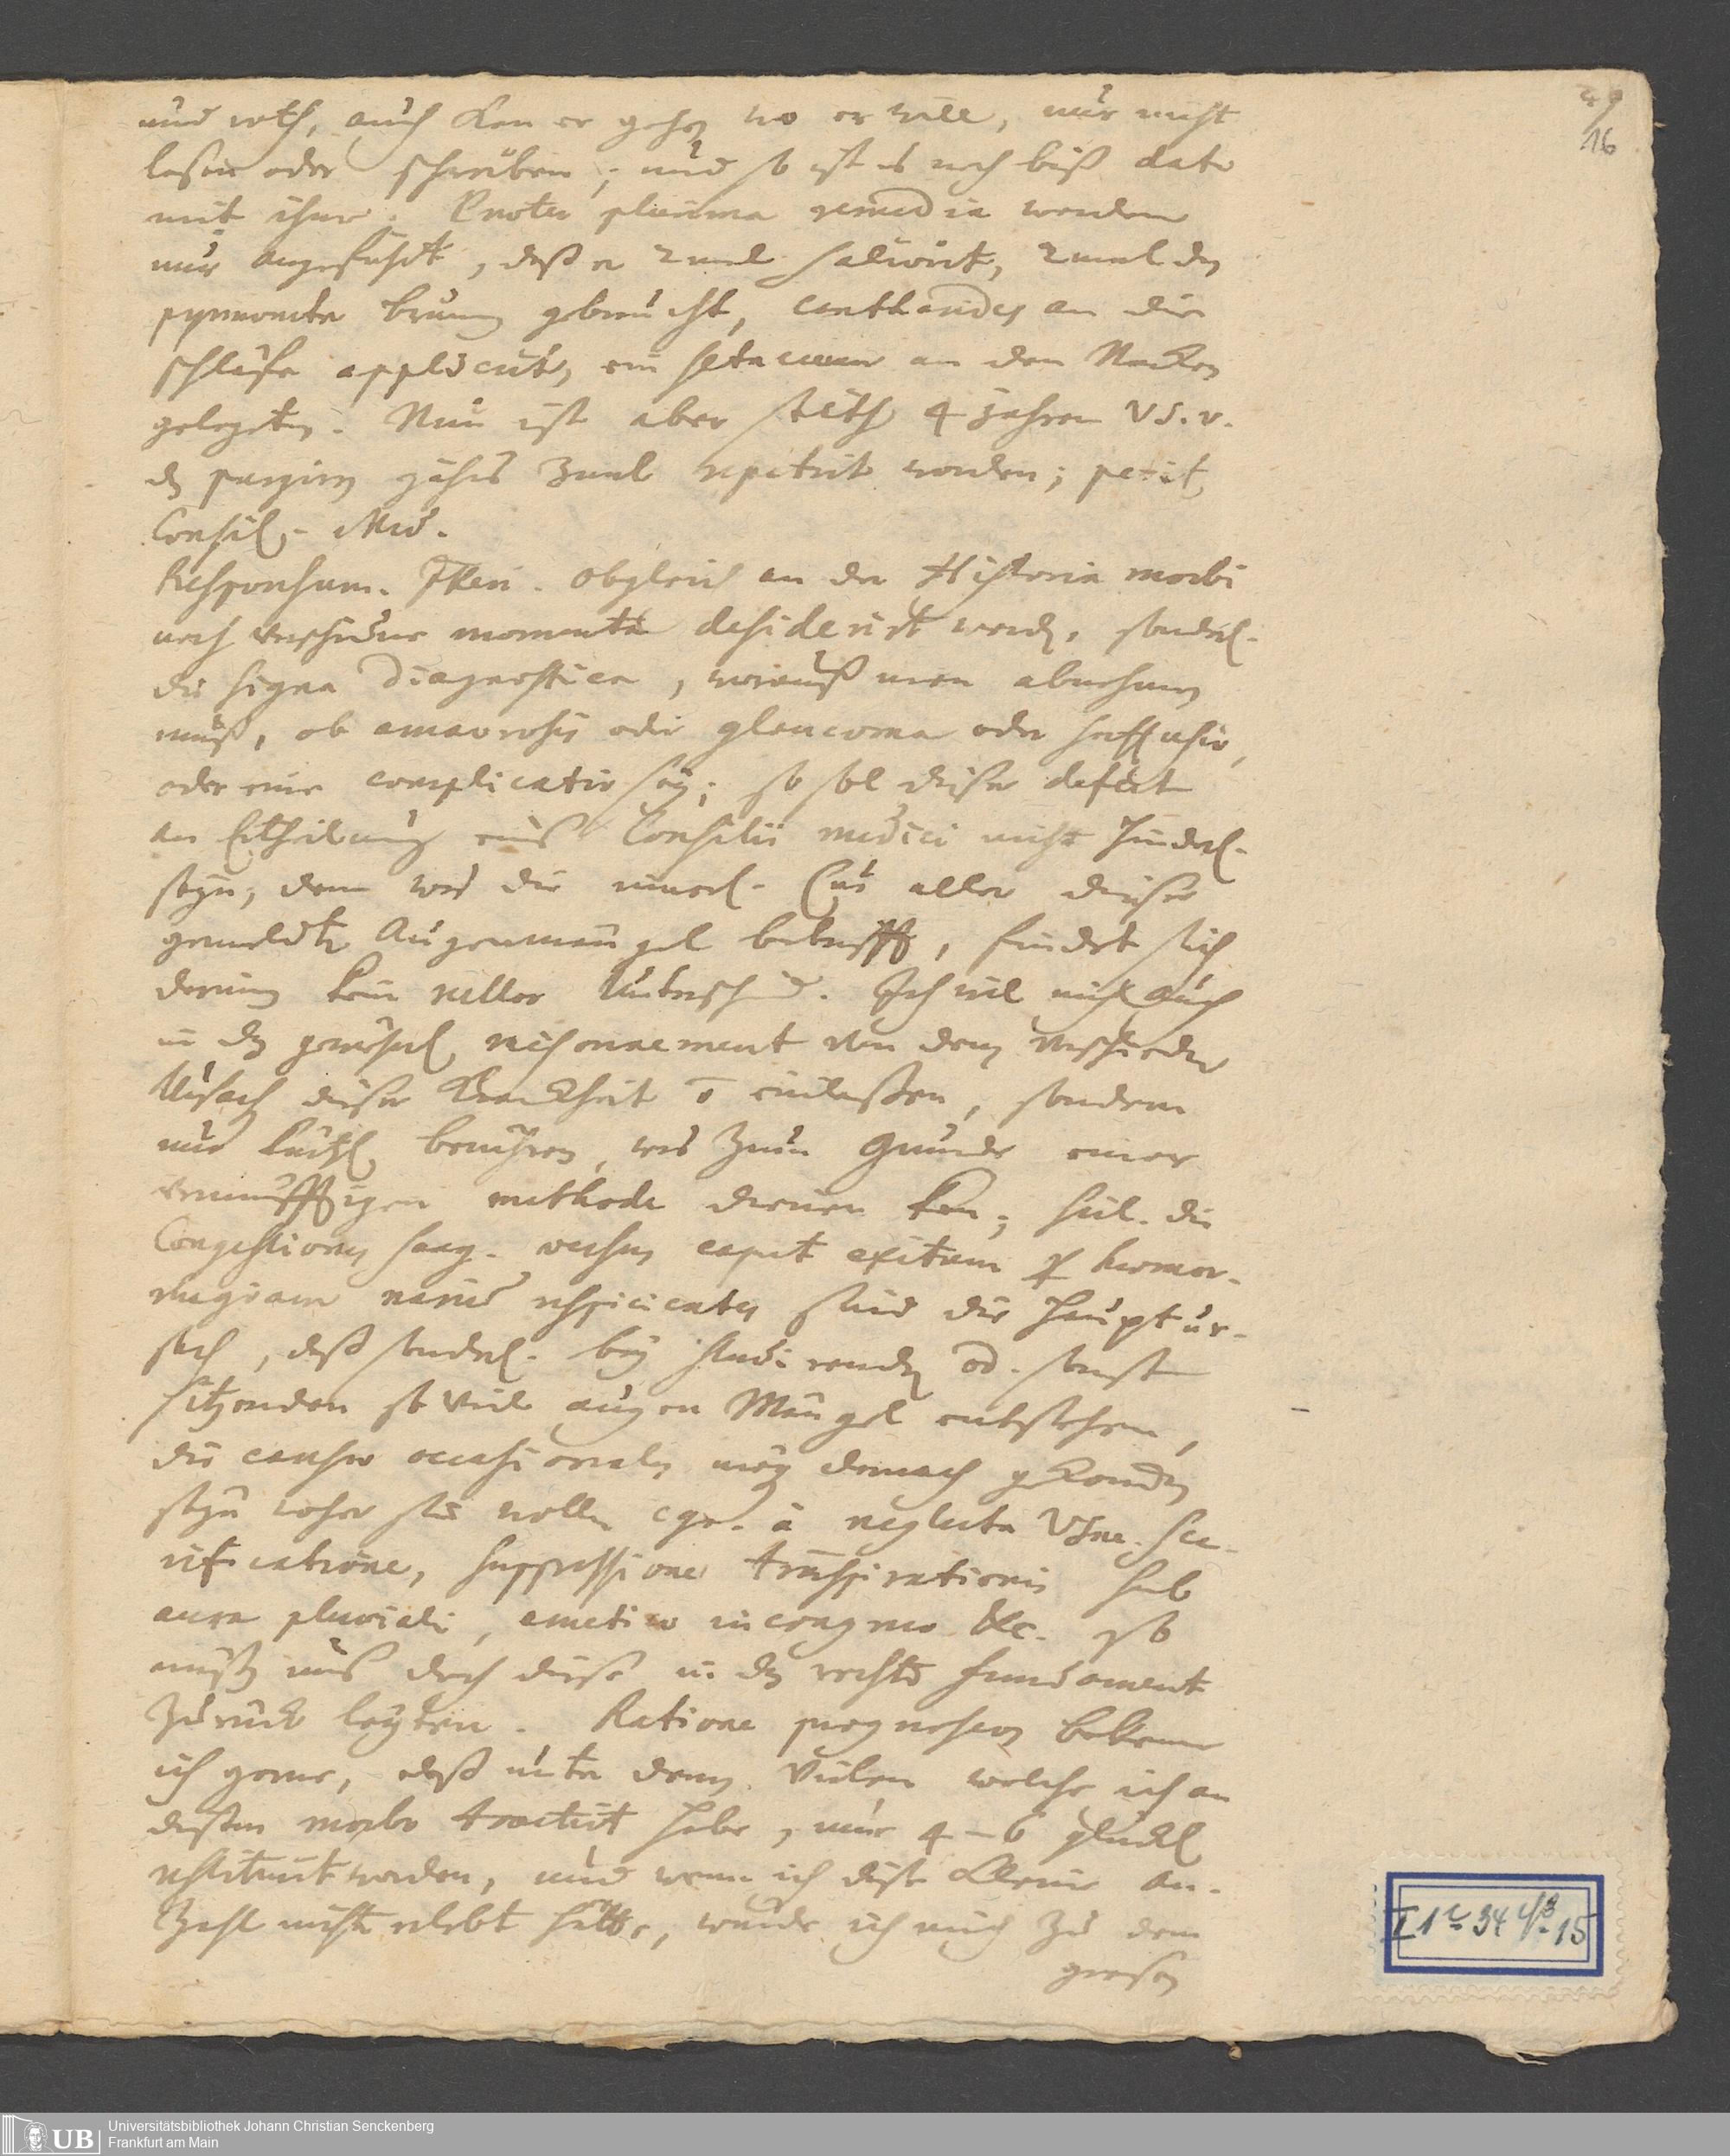 49
16
und roth, auch kan er gehen wo er will, nur nicht
lesen oder schreiben; und so ist es noch biß dato
mit ihme. Praeter plurima remedia werden
nur angeführt, daß er 2 mal salivirt, 2 mal den
pyrmonter brunnen gebraucht, cantharides an die
schläfe applicirt, ein setaceum an den Nacken
gelegt. Nun ist aber seith 4 jahren VS. v.
d purgiren jährl. 2 mal repetirt worden; petit
Consil. Med.
Responsum. Obgleich an der Historia morbi
noch verschiedene momenta desiderirt werden, sonderl.
die signa diagnostica, woraus man abnehmen
muß, ob amaurosis oder glaucoma oder suffusio,
oder eine complicatio sey; so sol dieser defect
an Ertheilung eines Consilii medici nicht hinderl.
seyn, denn was die Cur aller dieser
gemeldte Augenmängel betrifft, findet sich
darinn kein reller Unterschied. Ich will mich auch
in das raisonnement von den verschiedenen
Ursach dieser Krankheit einlassen, sondern
nur kürtzl. berühren, was zum Grunde einer
vernünfftigen methode dienen kan; die
Congestiones sang. versus caput exitum p haemor-
rhagiam narium respicientes sind die Haupt ur-
sach, daß sonderl. bey studirenden od. sonst
sitzenden so viele augen Mängel entstehen,
die causae occasionales mögen demnach gekommen
seyn woher sie wollen e.gr. à neglecta VSne. sca-
rificatione, suppressione transpirationis sub
aura pluviali, emetico incongruo &c. so
muß uns doch diese in das rechte fundament
zurück leyten. Ratione prognoseos bekenne
ich gerne, daß unter denen Vielen welche ich an
diesem morbo tractirt habe, nur 4 – 6 glückl.
restituirt worden, und wenn ich diese kleine An-
zahl nicht erlebt hätte, würde ich mich zu dem
grosen
Universitätsbibliothek Johann Christian Senckenberg
Frankfurt am Main
UB